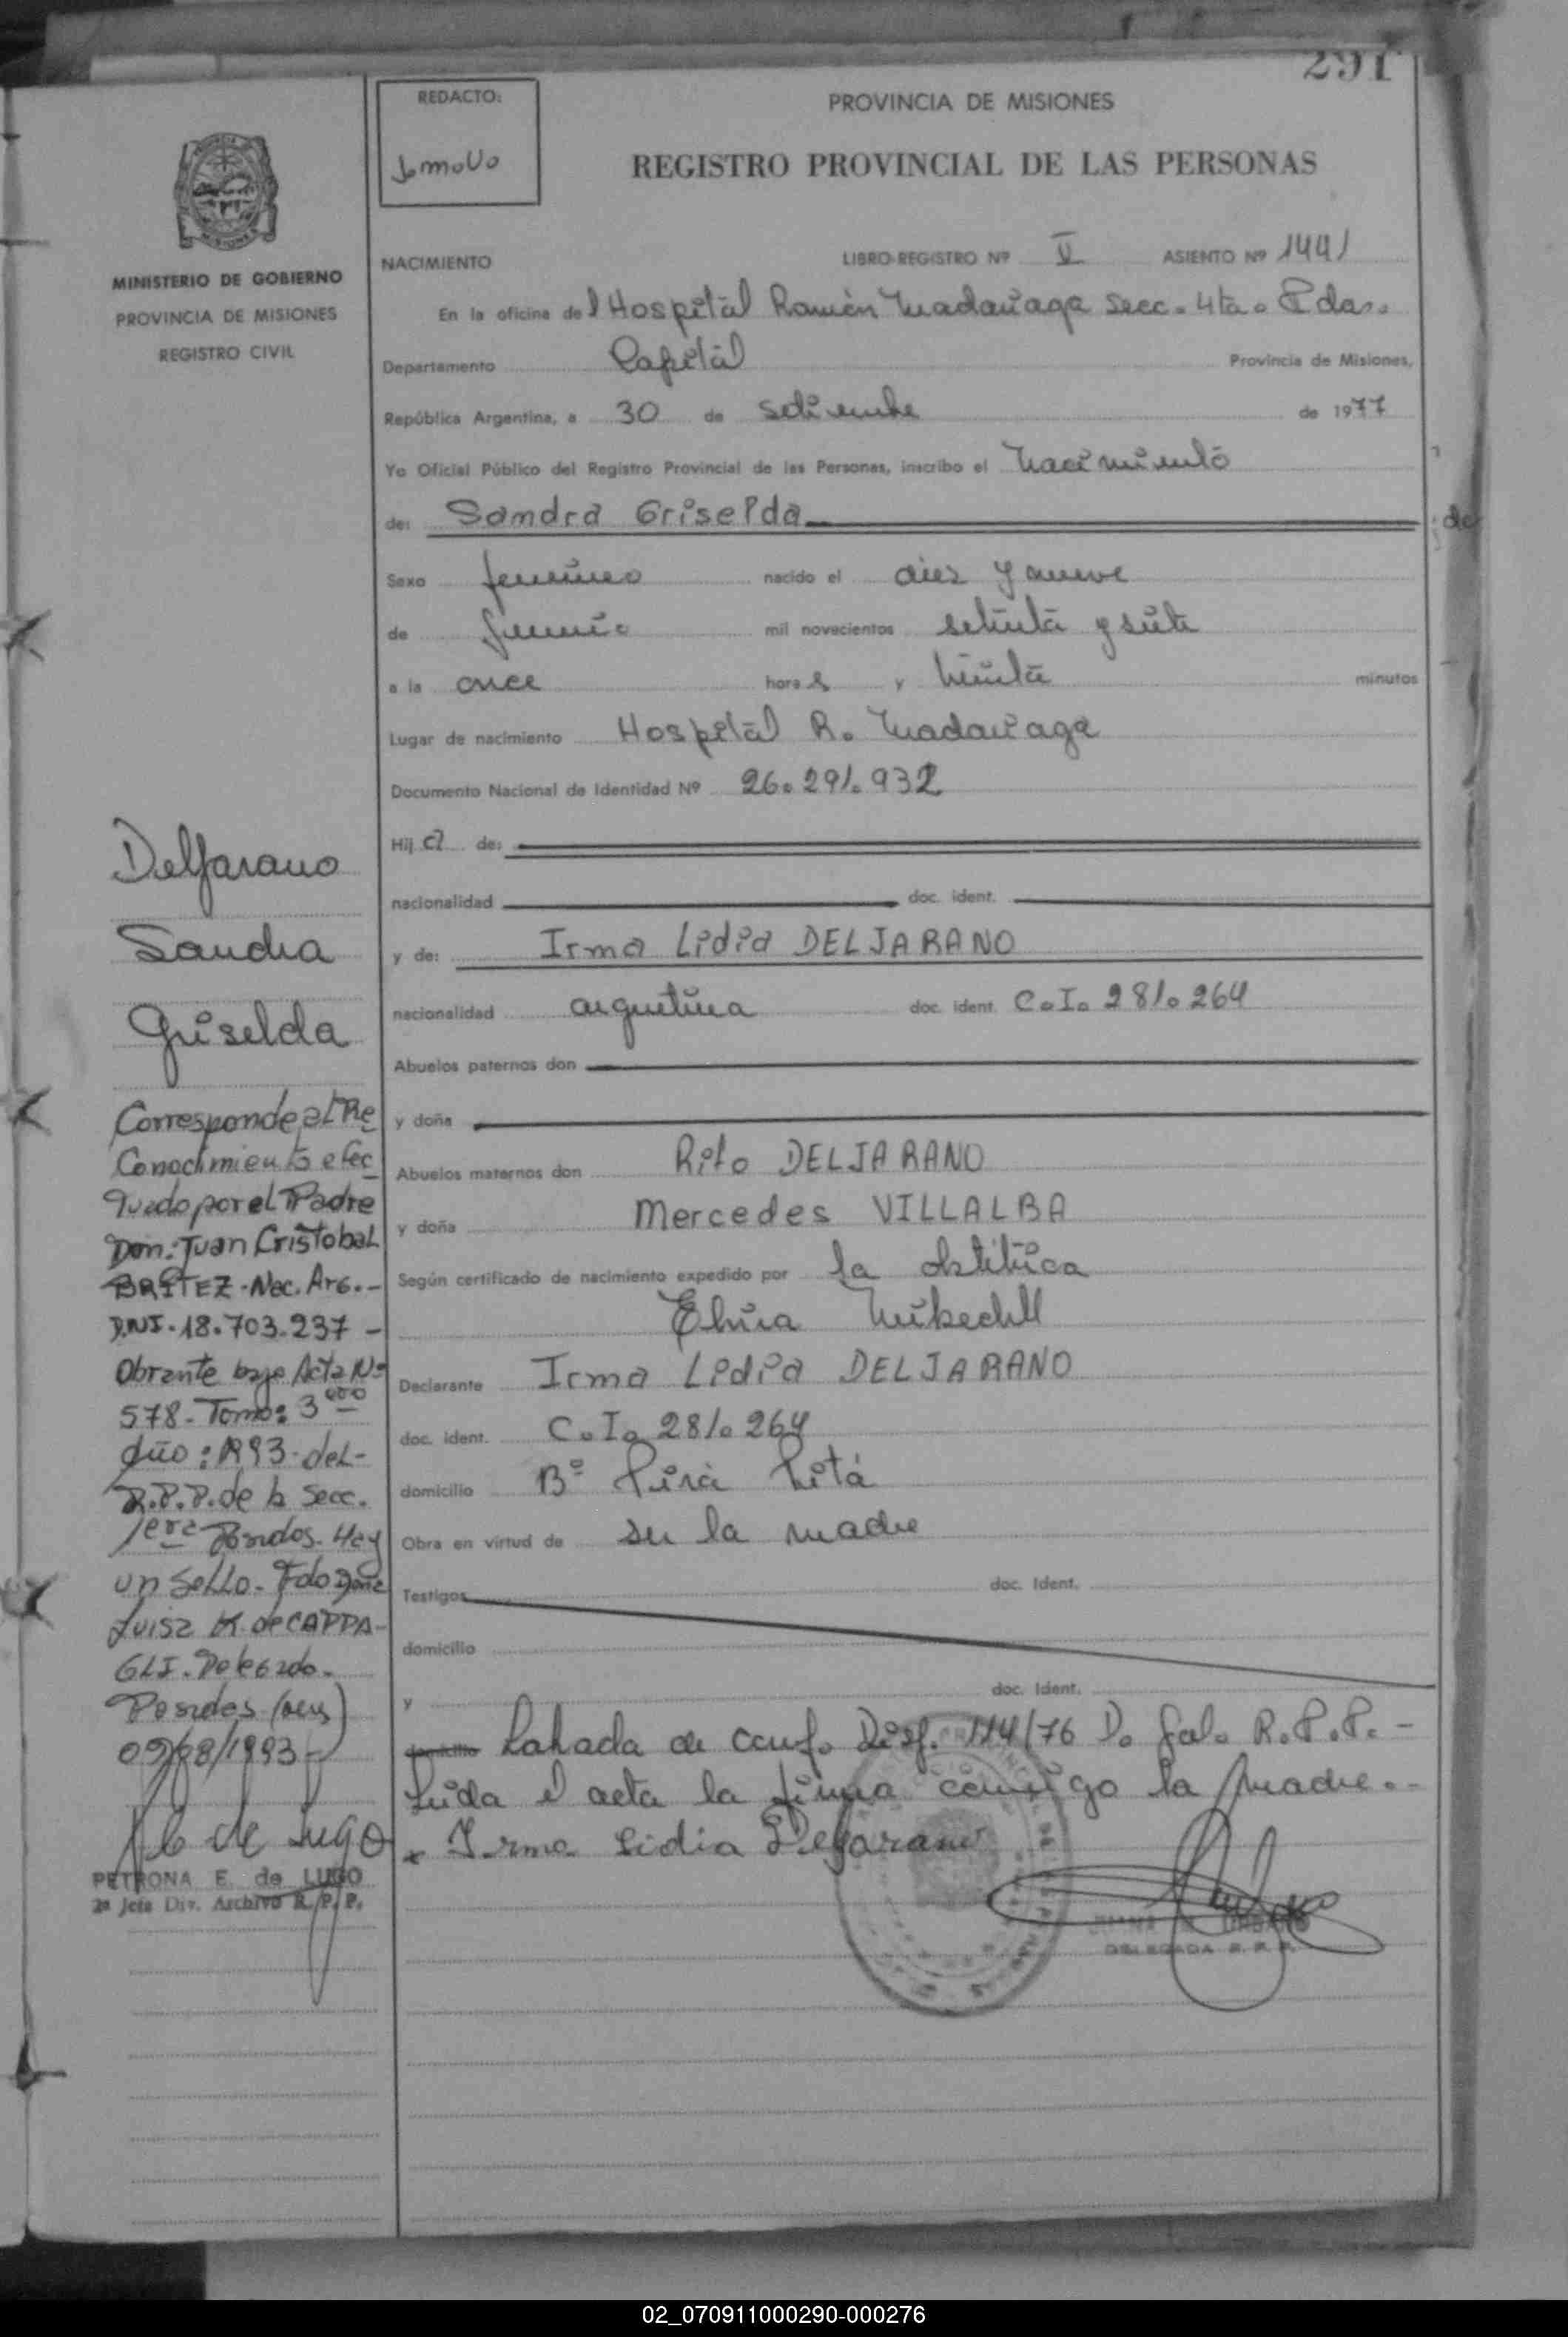 291
REDACTO:
PROVINCIA DE MISIONES
REGISTRO PROVINCIAL DE LAS PERSONAS
MINISTERIO DE GOBIERNO
PROVINCIA DE MISIONES
REGISTRO CIVIL
NACIMIENTO LIBRO-REGISTRO Nº V ASIENTO Nº 1441
En la oficina del Hospital Ramón Madariaga Secc. 4ta. Pdas.
Departamento Capital Provincia de Misiones,
República Argentina, a 30 de setiembre de 1977
Yo Oficial Público del Registro Provincial de las Personas, inscribo el nacimiento
de: Sandra Griselda
Sexo femenino nacido el diez y nueve
de junio mil novecientos setenta y siete
a la once horas y treinta minutos
Lugar de nacimiento Hospital R. Madariaga
Documento Nacional de Identidad Nº 26.291.932
Hija de:
nacionalidad doc. ident.
y de: Irma Lidia DELJARANO
nacionalidad argentina doc. ident. C.I. 281.264
Abuelos paternos don
y doña
Abuelos maternos don Rito DELJARANO
y doña Mercedes VILLALBA
Según certificado de nacimiento expedido por la obstétrica
Elvira
Declarante Irma Lidia DELJARANO
doc. ident. C.I. 281.264
domicilio Bº Pirá Pitá
Obra en virtud de ser la madre
Testigos doc. Ident.
domicilio
y doc. Ident.
domicilio Labrada de conf. Disp. 114/76 D. Gal. R.P.P. -
Leida el acta la firma conmigo la madre. -
x Irma Lidia Deljarano
DELEGADA R. P. P.
Deljarano
Sandra
Griselda
Corresponde al Re
conocimiento efec
tuado por el Padre
Don: Juan Cristobal
BRITEZ - Nac. Arg. -
D.N.I. 18.703.237 -
Obrante bajo Acta Nº
578 - Tomo: 3ero
año: 1993 - del -
R.P.P. de la Secc.
1era Posadas. Hay
un Sello. Fdo Doña
Luisa K. de CAPPA-
GLI. Delegada.
Posadas (Mnes)
09/08/1993
PETRONA E. de LUGO
2ª Jefa Div. Archivo R. P. P.
02_070911000290-000276